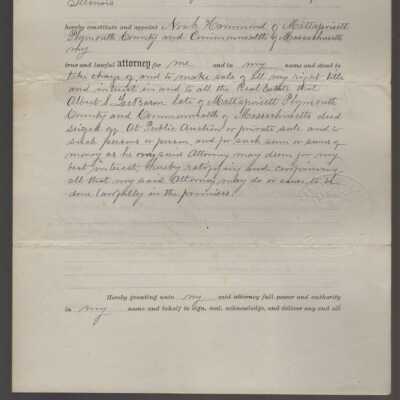 Illinois
hereby constitute and appoint Noah Hammond of Mattapoisett
Plymouth County and Commonwealth of Massachusetts
my
true and lawful attorney for me and in my name and stead to
take charge of, and to make sale of all my right title
and interest in and to all the Real Estate that
Albert S. late of Mattapoisett Plymouth
County and Commonwealth of Massachusetts died
seized of. At Public Auction or private sale and to
such persons or person, and for such sum or sums of
money as he my said Attorney may deem for my
best interest, hereby ratifying and confirming
all that my said Attorney may do or cause to be
done lawfully in the premises.
Hereby granting unto my said attorney full power and authority
in my name and behalf to sign, seal, acknowledge, and deliver any and all